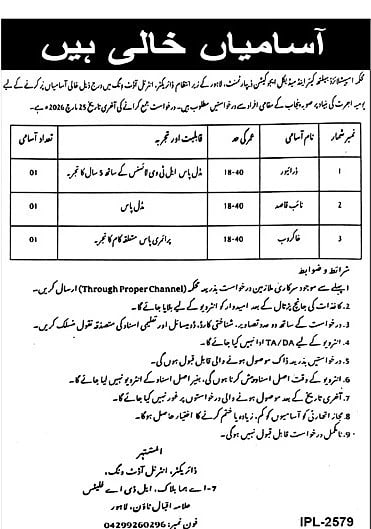 آسامیاں خالی ہیں
محکمہ اسپیشلائزڈ ہیلتھ کیئر اینڈ میڈیکل ایجوکیشن ڈیپارٹمنٹ، لاہور کے زیر انتظام ڈائریکٹر، انٹرنل آڈٹ ونگ میں درج ذیل خالی آسامیاں پُر کرنے کے لیے
یومیہ اجرت کی بنیاد پر صوبہ پنجاب کے مقامی افراد سے درخواستیں مطلوب ہیں۔ درخواست جمع کرانے کی آخری تاریخ 25 مارچ 2026ء ہے۔
نمبر شمار نام آسامی عمر کی حد قابلیت اور تجربہ تعداد آسامی
1 ڈرائیور 18-40 مڈل پاس ایل ٹی وی لائسنس کے ساتھ 5 سال کا تجربہ 01
2 نائب قاصد 18-40 مڈل پاس 01
3 خاکروب 18-40 پرائمری پاس متعلقہ کام کا تجربہ 01
شرائط و ضوابط
1۔ پہلے سے موجود سرکاری ملازمین درخواست بذریعہ محکمہ (Through Proper Channel) ارسال کریں۔
2۔ کاغذات کی جانچ پڑتال کے بعد امیدوار کو انٹرویو کے لیے بلایا جائے گا۔
3۔ درخواست کے ساتھ دو عدد تصاویر، شناختی کارڈ، ڈومیسائل اور تعلیمی اسناد کی مصدقہ نقول منسلک کریں۔
4۔ انٹرویو کے لیے TA/DA ادا نہیں کیا جائے گا۔
5۔ درخواستیں بذریعہ ڈاک موصول ہونے والی قابل قبول ہوں گی۔
6۔ انٹرویو کے وقت اصل اسناد پیش کرنا ہوں گی، بغیر اصل اسناد کے انٹرویو نہیں لیا جائے گا۔
7۔ آخری تاریخ کے بعد موصول ہونے والی درخواستوں پر غور نہیں کیا جائے گا۔
8۔ مجاز اتھارٹی کو آسامیوں کو کم، زیادہ یا ختم کرنے کا اختیار حاصل ہوگا۔
9۔ نامکمل درخواست قابل قبول نہیں ہوگی۔
المشتہر
ڈائریکٹر، انٹرنل آڈٹ ونگ،
7-اے ہما بلاک، ایل ڈی اے فلیٹس
علامہ اقبال ٹاؤن، لاہور
فون نمبر: 04299260296
IPL-2579